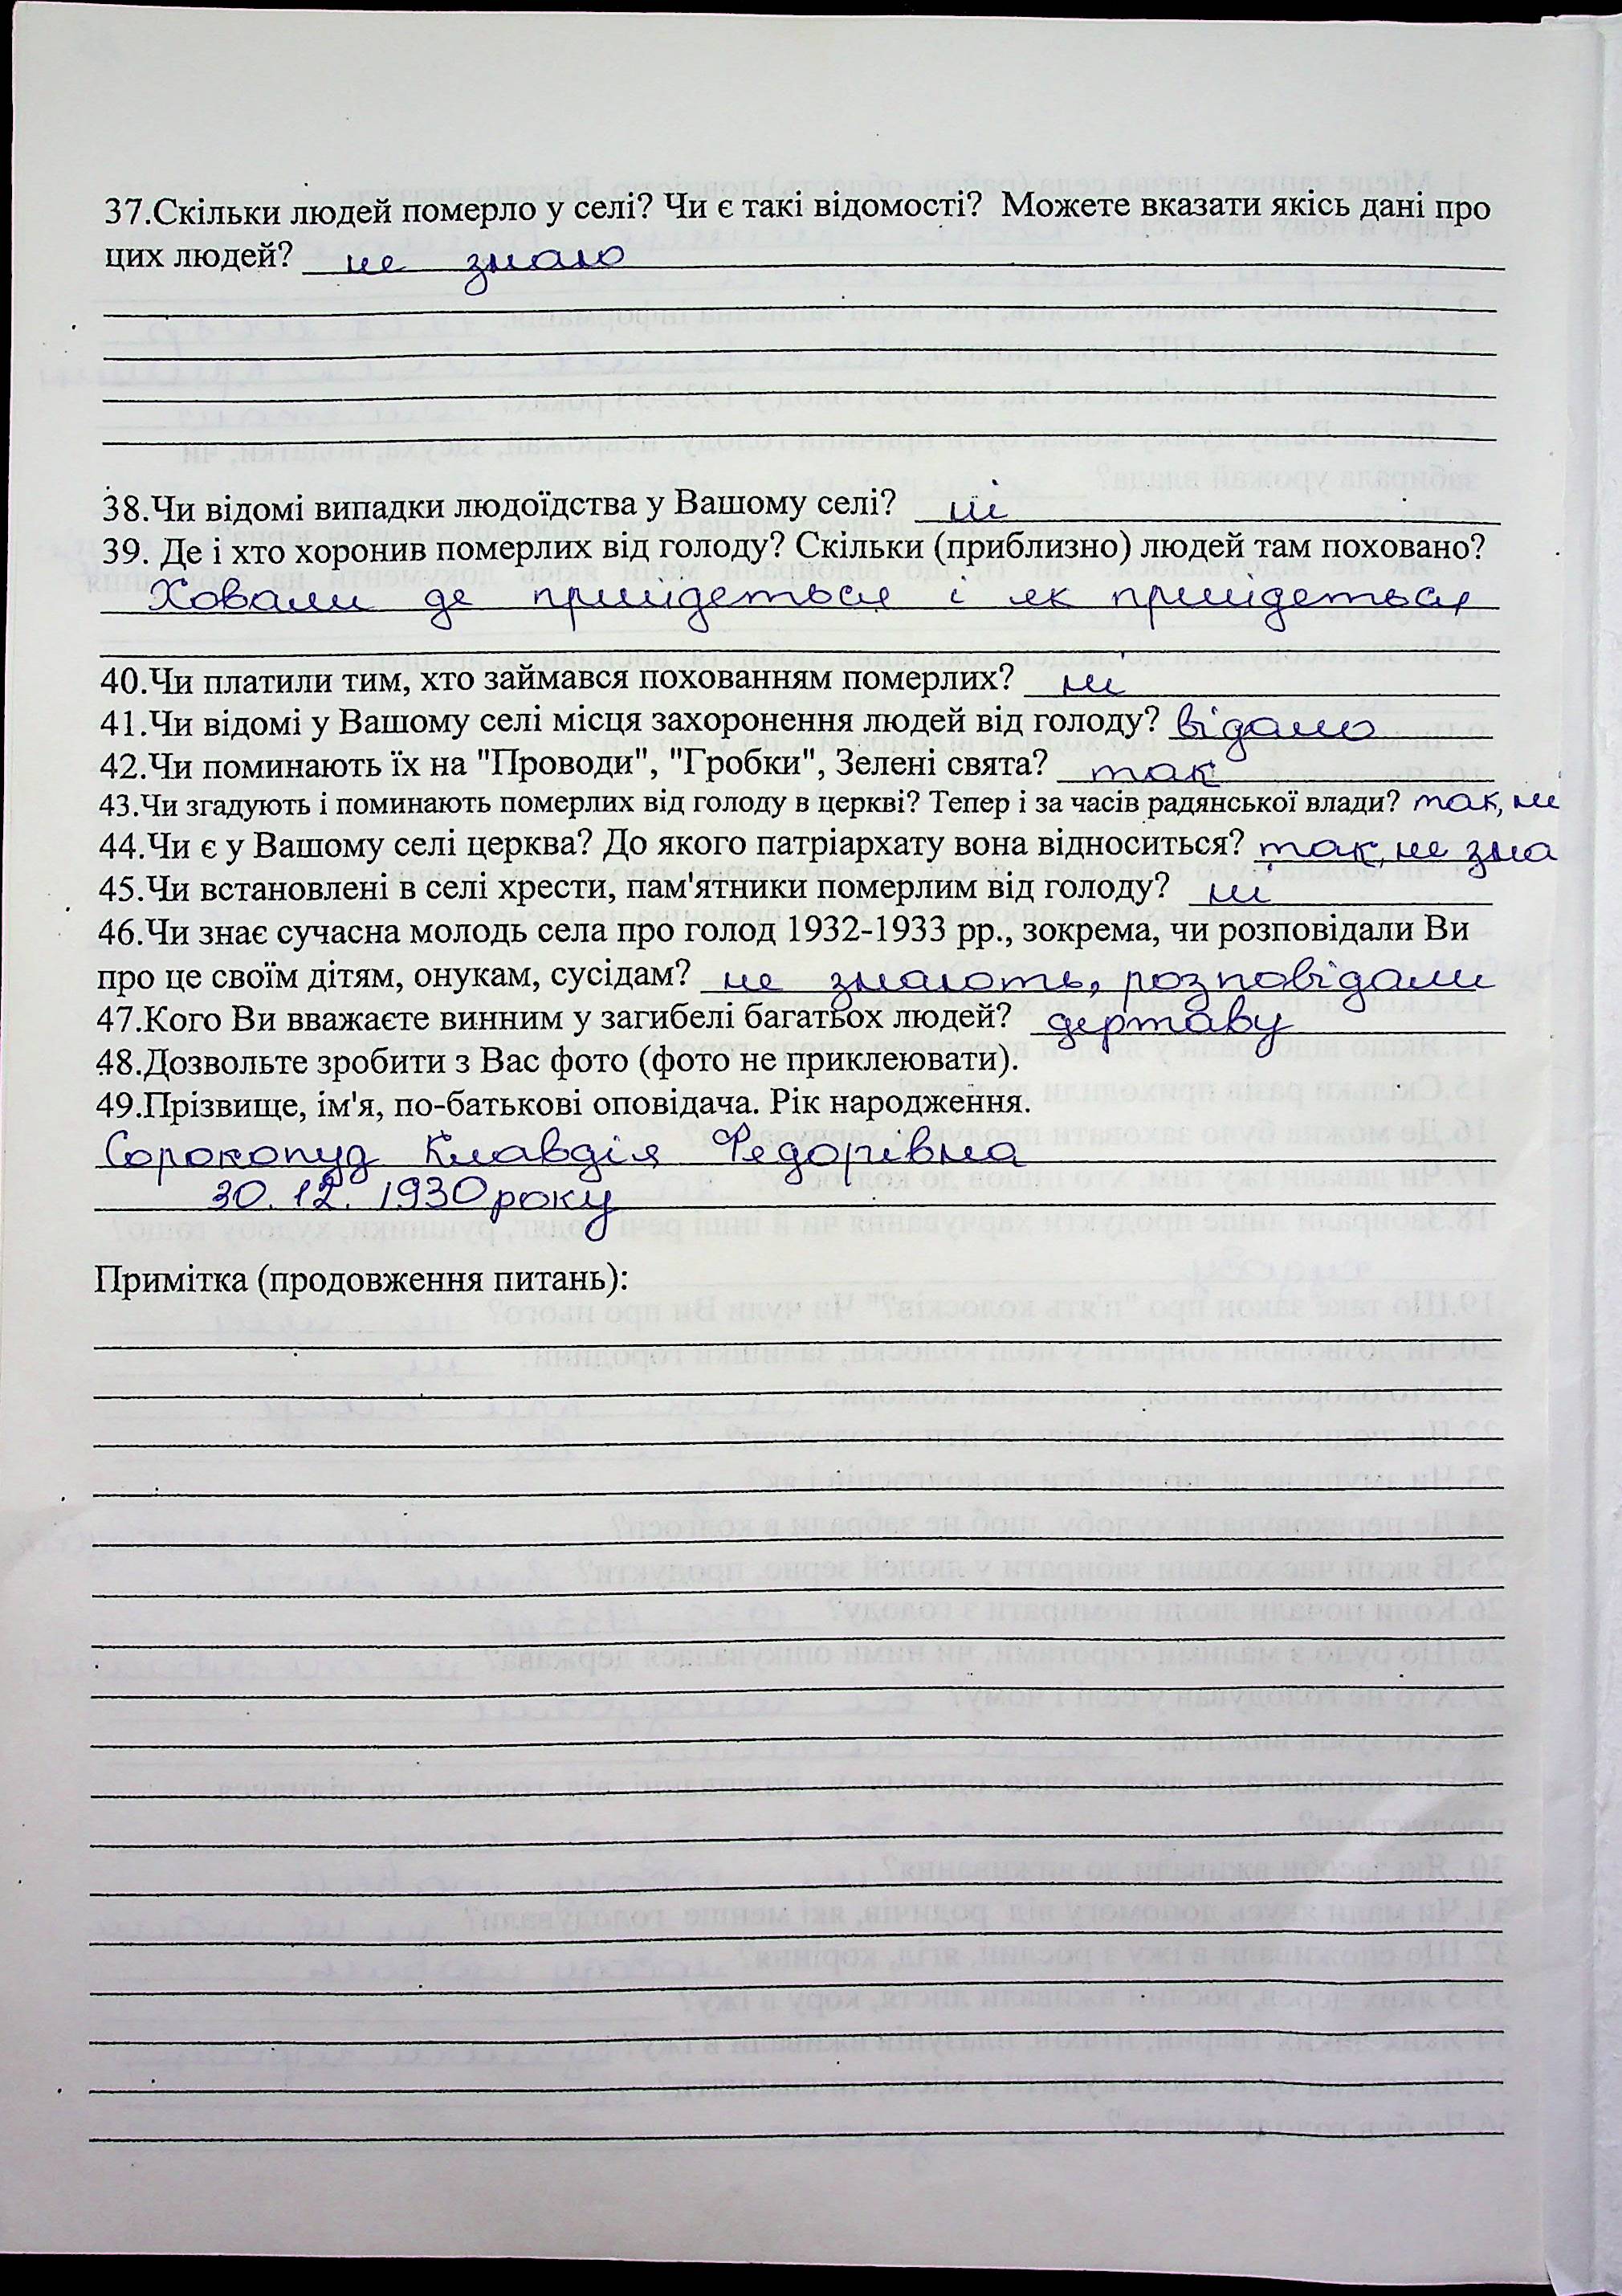 37.Скільки людей померло у селі? Чи є такі відомості? Можете вказати якісь дані про
цих людей? не знаю
38.Чи відомі випадки людоїдства у Вашому селі? ні
39. Де і хто хоронив померлих від голоду? Скільки (приблизно) людей там поховано?
Ховали де прийідеться і як прийідеться
40.Чи платили тим, хто займався похованням померлих? ні
41.Чи відомі у Вашому селі місця захоронення людей від голоду? відомо
42.Чи поминають їх на "Проводи", "Гробки", Зелені свята? так
43.Чи згадують і поминають померлих від голоду в церкві? Тепер і за часів радянської влади? так, ні
44.Чи є у Вашому селі церква? До якого патріархату вона відноситься? так, не зна
45.Чи встановлені в селі хрести, пам'ятники померлим від голоду? ні
46.Чи знає сучасна молодь села про голод 1932-1933 рр., зокрема, чи розповідали Ви
про це своїм дітям, онукам, сусідам? не знають, розповідали
47.Кого Ви вважаєте винним у загибелі багатьох людей? державу
48.Дозвольте зробити з Вас фото (фото не приклеювати).
49.Прізвище, ім'я, по-батькові оповідача. Рік народження.
Сорокопуд Клавдія Федорівна
30.12.1930 року
Примітка (продовження питань):